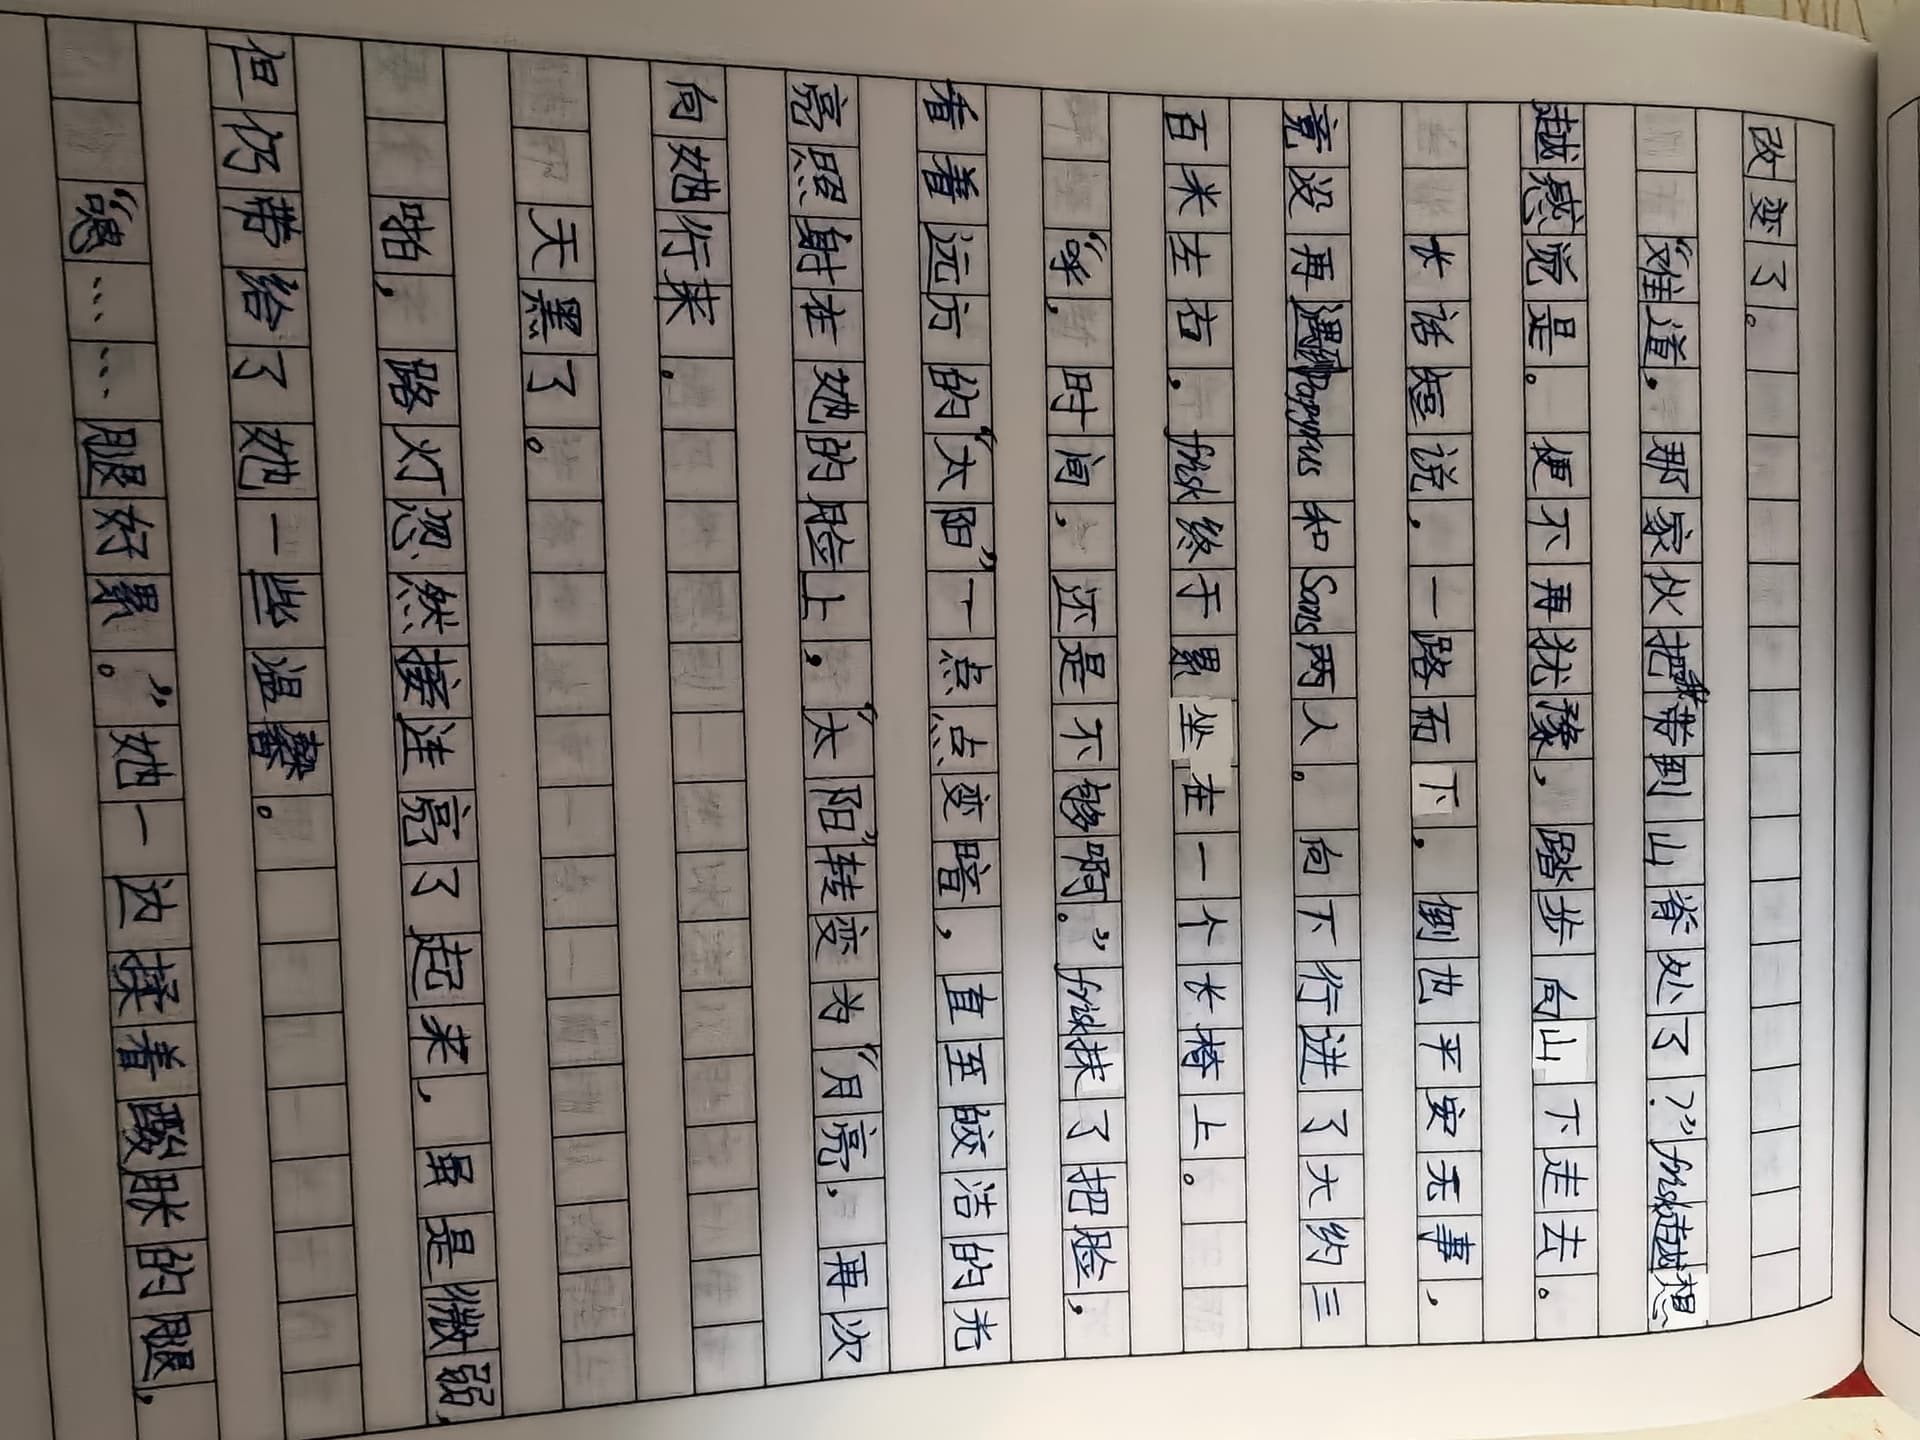 改变了。
“难道，那家伙把我带到山脊处了？”frisk越想
越感觉是。便不再犹豫，踏步向山下走去。
长话短说，一路而下，倒也平安无事，
竟没再遇到Papyrus和Sans两人。向下行进了大约三
百米左右，frisk终于累坐在一个长椅上。
“呼，时间，还是不够啊。”frisk抹了把脸，
看着远方的“太阳”一点点变暗，直至皎洁的光
亮照射在她的脸上，“太阳”转变为“月亮，再次
向她行来。
天黑了。
啪，路灯忽然接连亮了起来，虽是微弱，
但仍带给了她一些温馨。
“嗯……腿好累。”她一边揉着酸胀的腿，